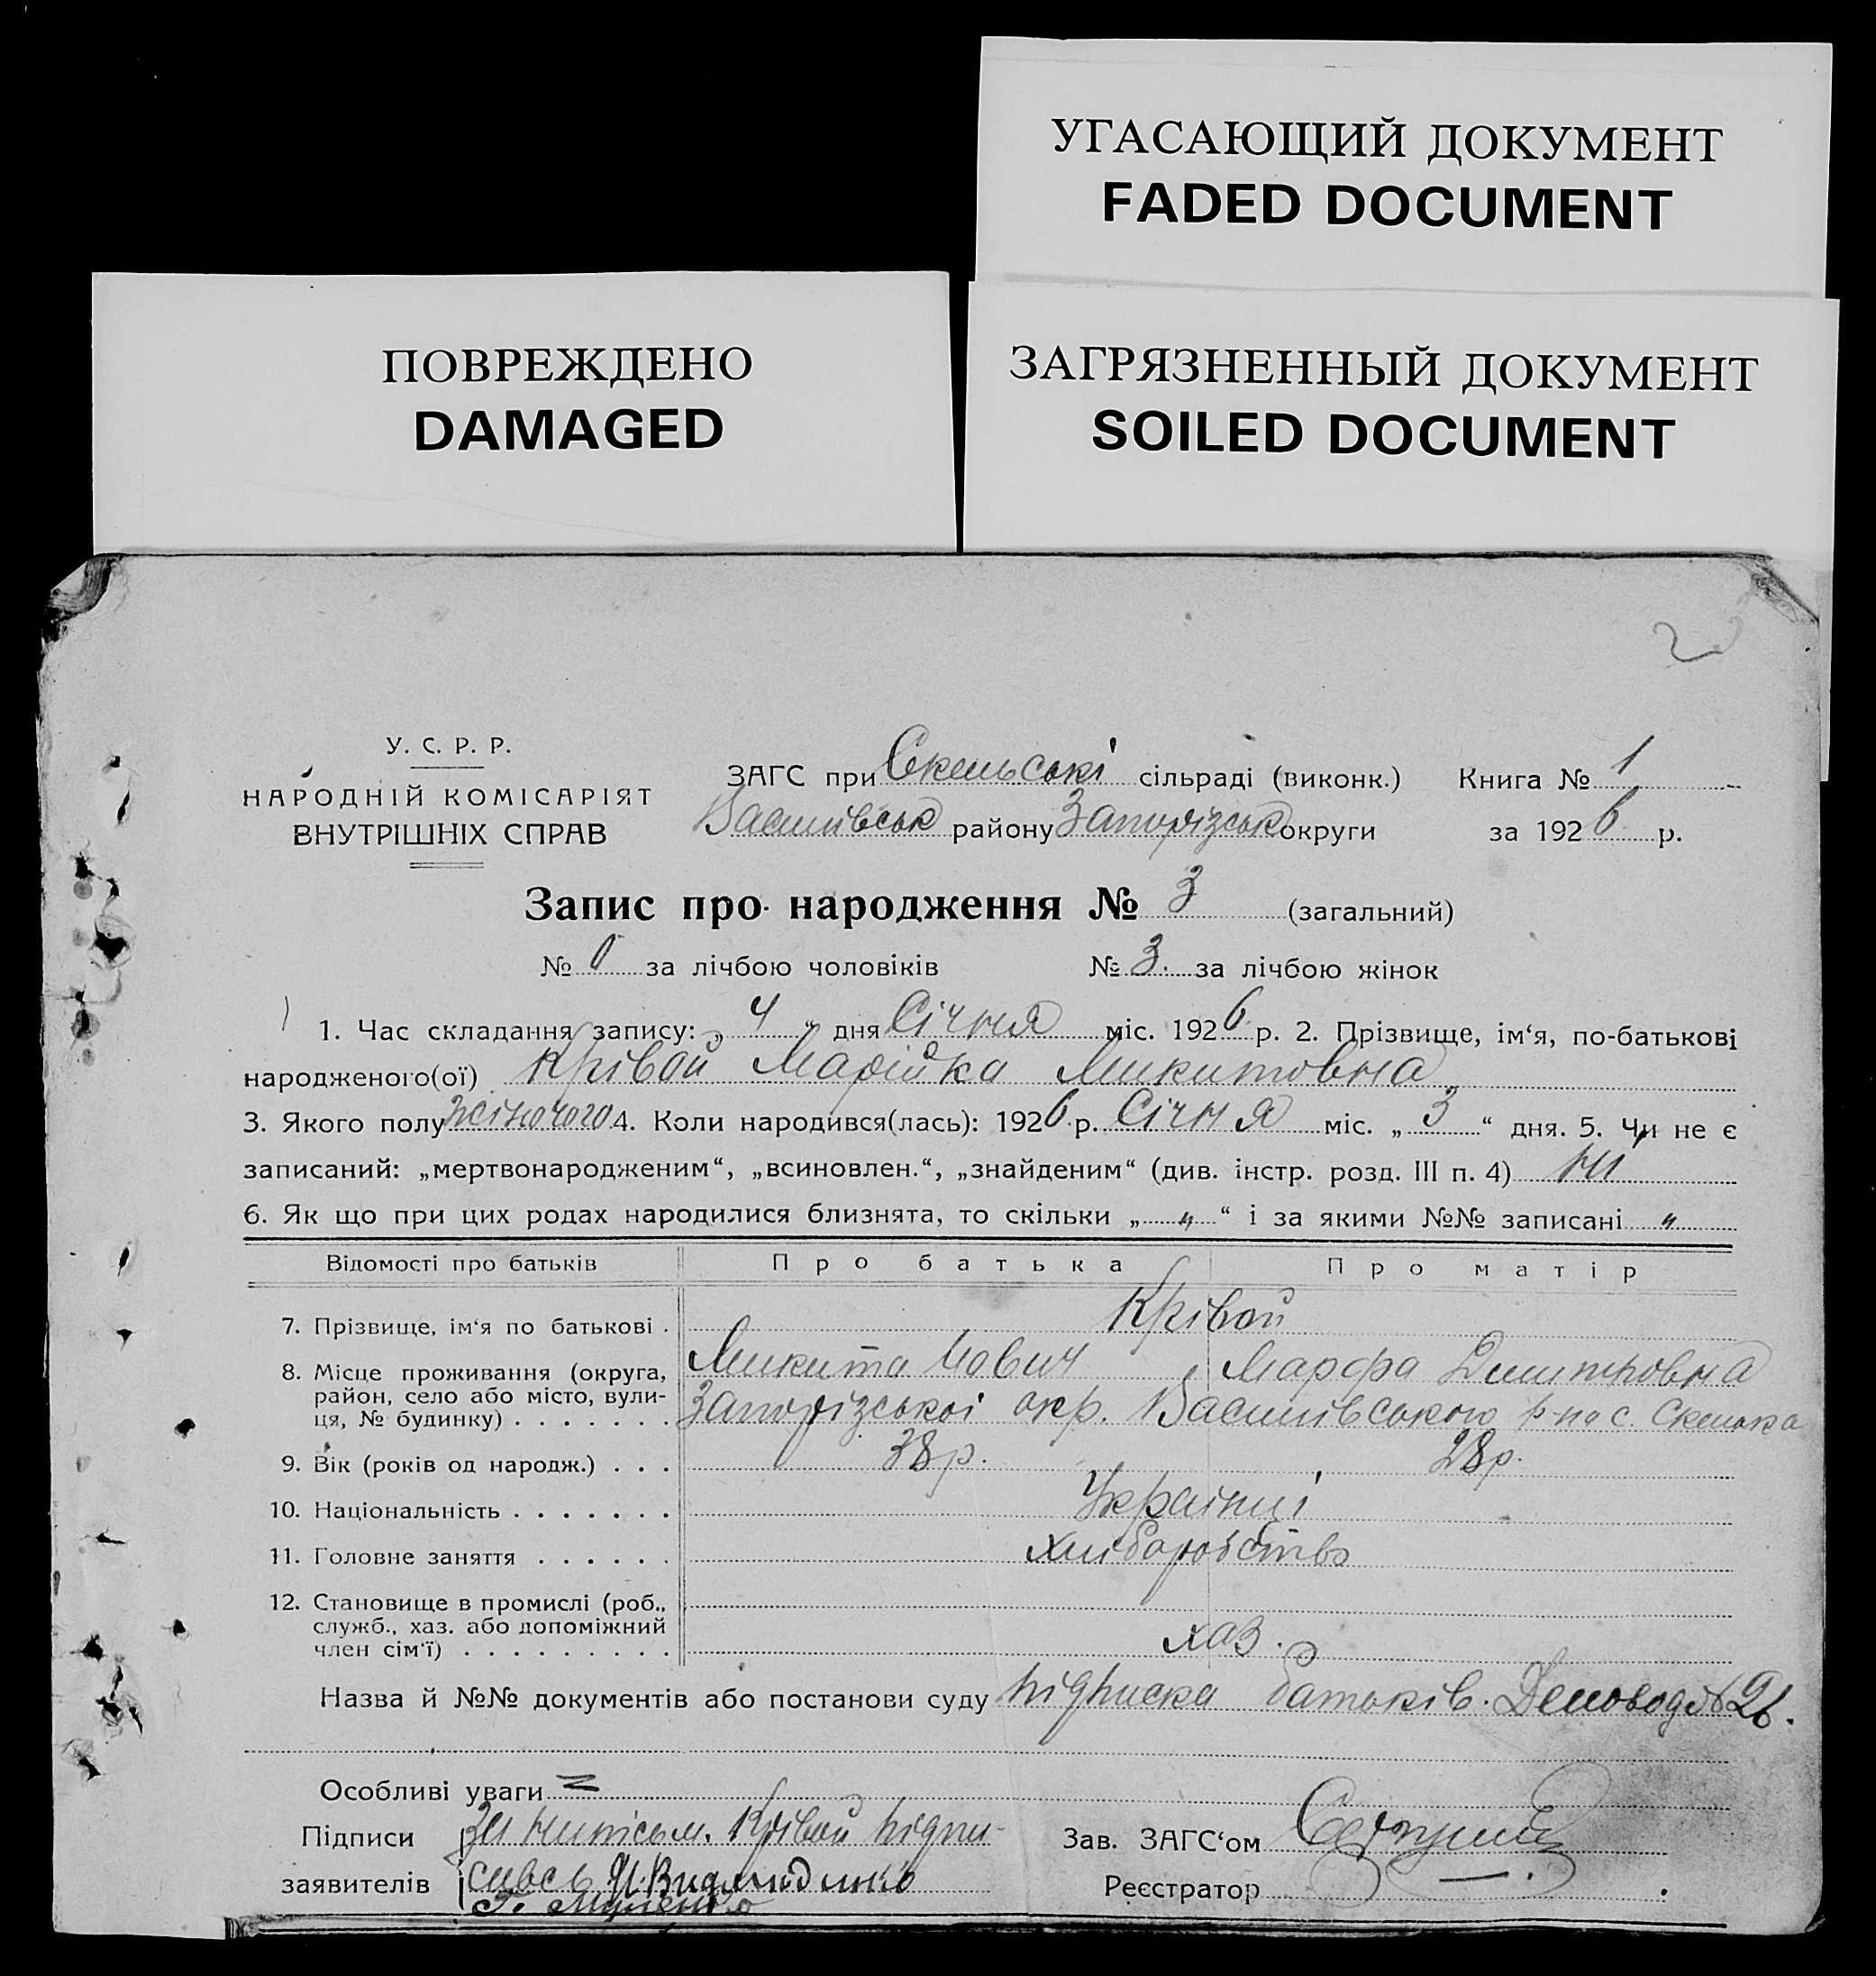 УГАСАЮЩИЙ ДОКУМЕНТ
FADED DOCUMENT
ПОВРЕЖДЕНО
DAMAGED
ЗАГРЯЗНЕННЫЙ ДОКУМЕНТ
SOILED DOCUMENT
2
У. С. Р. Р.
НАРОДНІЙ КОМІСАРІЯТ
ВНУТРІШНІХ СПРАВ
ЗАГС при Скельські сільраді (виконк.) Книга № 1
Василівськ району Запорізськ округи за 1926 р.
Запис про народження № 3 (загальний)
№ 0 за лічбою чоловіків № 3. за лічбою жінок
1. Час складання запису: „ 4 “ дня Січня міс. 1926 р. 2. Прізвище, ім‘я, по-батькові
народженого(ої) Крівой Марійка Микитовна
3. Якого полу жіночого 4. Коли народився(лась): 1926 р. Січня міс. „ 3 “ дня. 5. Чи не є
записаний: „мертвонародженим“, „всиновлен.“, „знайденим“ (див. інстр. розд. III п. 4) ні
6. Як що при цих родах народилися близнята, то скільки „ „ “ і за якими №№ записані „
Відомості про батьків Про батька Про матір
7. Прізвище, ім‘я по батькові . Крівой
Микита Марфа Дмитровна
8. Місце проживання (округа, район, село або місто, вулиця, № будинку) . . . . . . . Запорізської окр. Василівського р-на с. Скелька
9. Вік (років од народж.) . . . 38 р. 28 р.
10. Національність . . . . . . . Українці
11. Головне заняття . . . . . . Хліборобство
12. Становище в промислі (роб.,
служб., хаз. або допоміжний
член сім‘ї) . . . . . . . . . хаз.
Назва й №№ документів або постанови суду підписка батьків.
Особливі уваги =
Підписи Крівой підпи-
заявителів сався
Зав. ЗАГС‘ом
Реєстратор